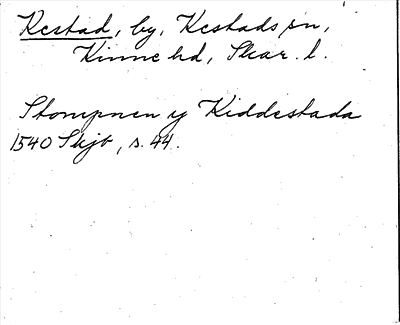 Kestad, by, Kestads sn,
Kinne hd, Skar. l.
Stompnen y Kiddestada
1540 Skjb, s. 44.